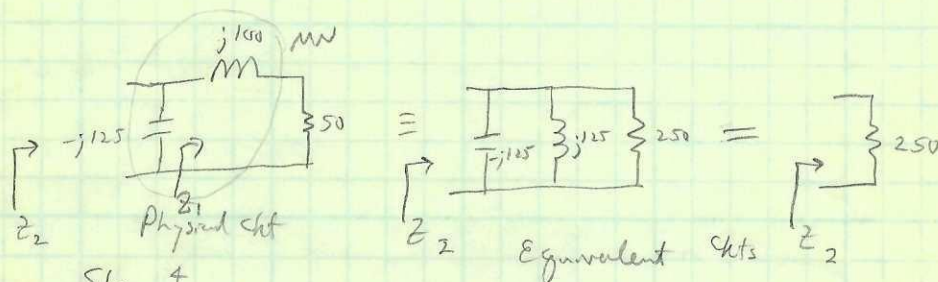 j100 MN
-j125 50 ≡ -j125 j125 250 = 250
Z1
Z2 Physical Ckt Z2 Equivalent Ckts Z2